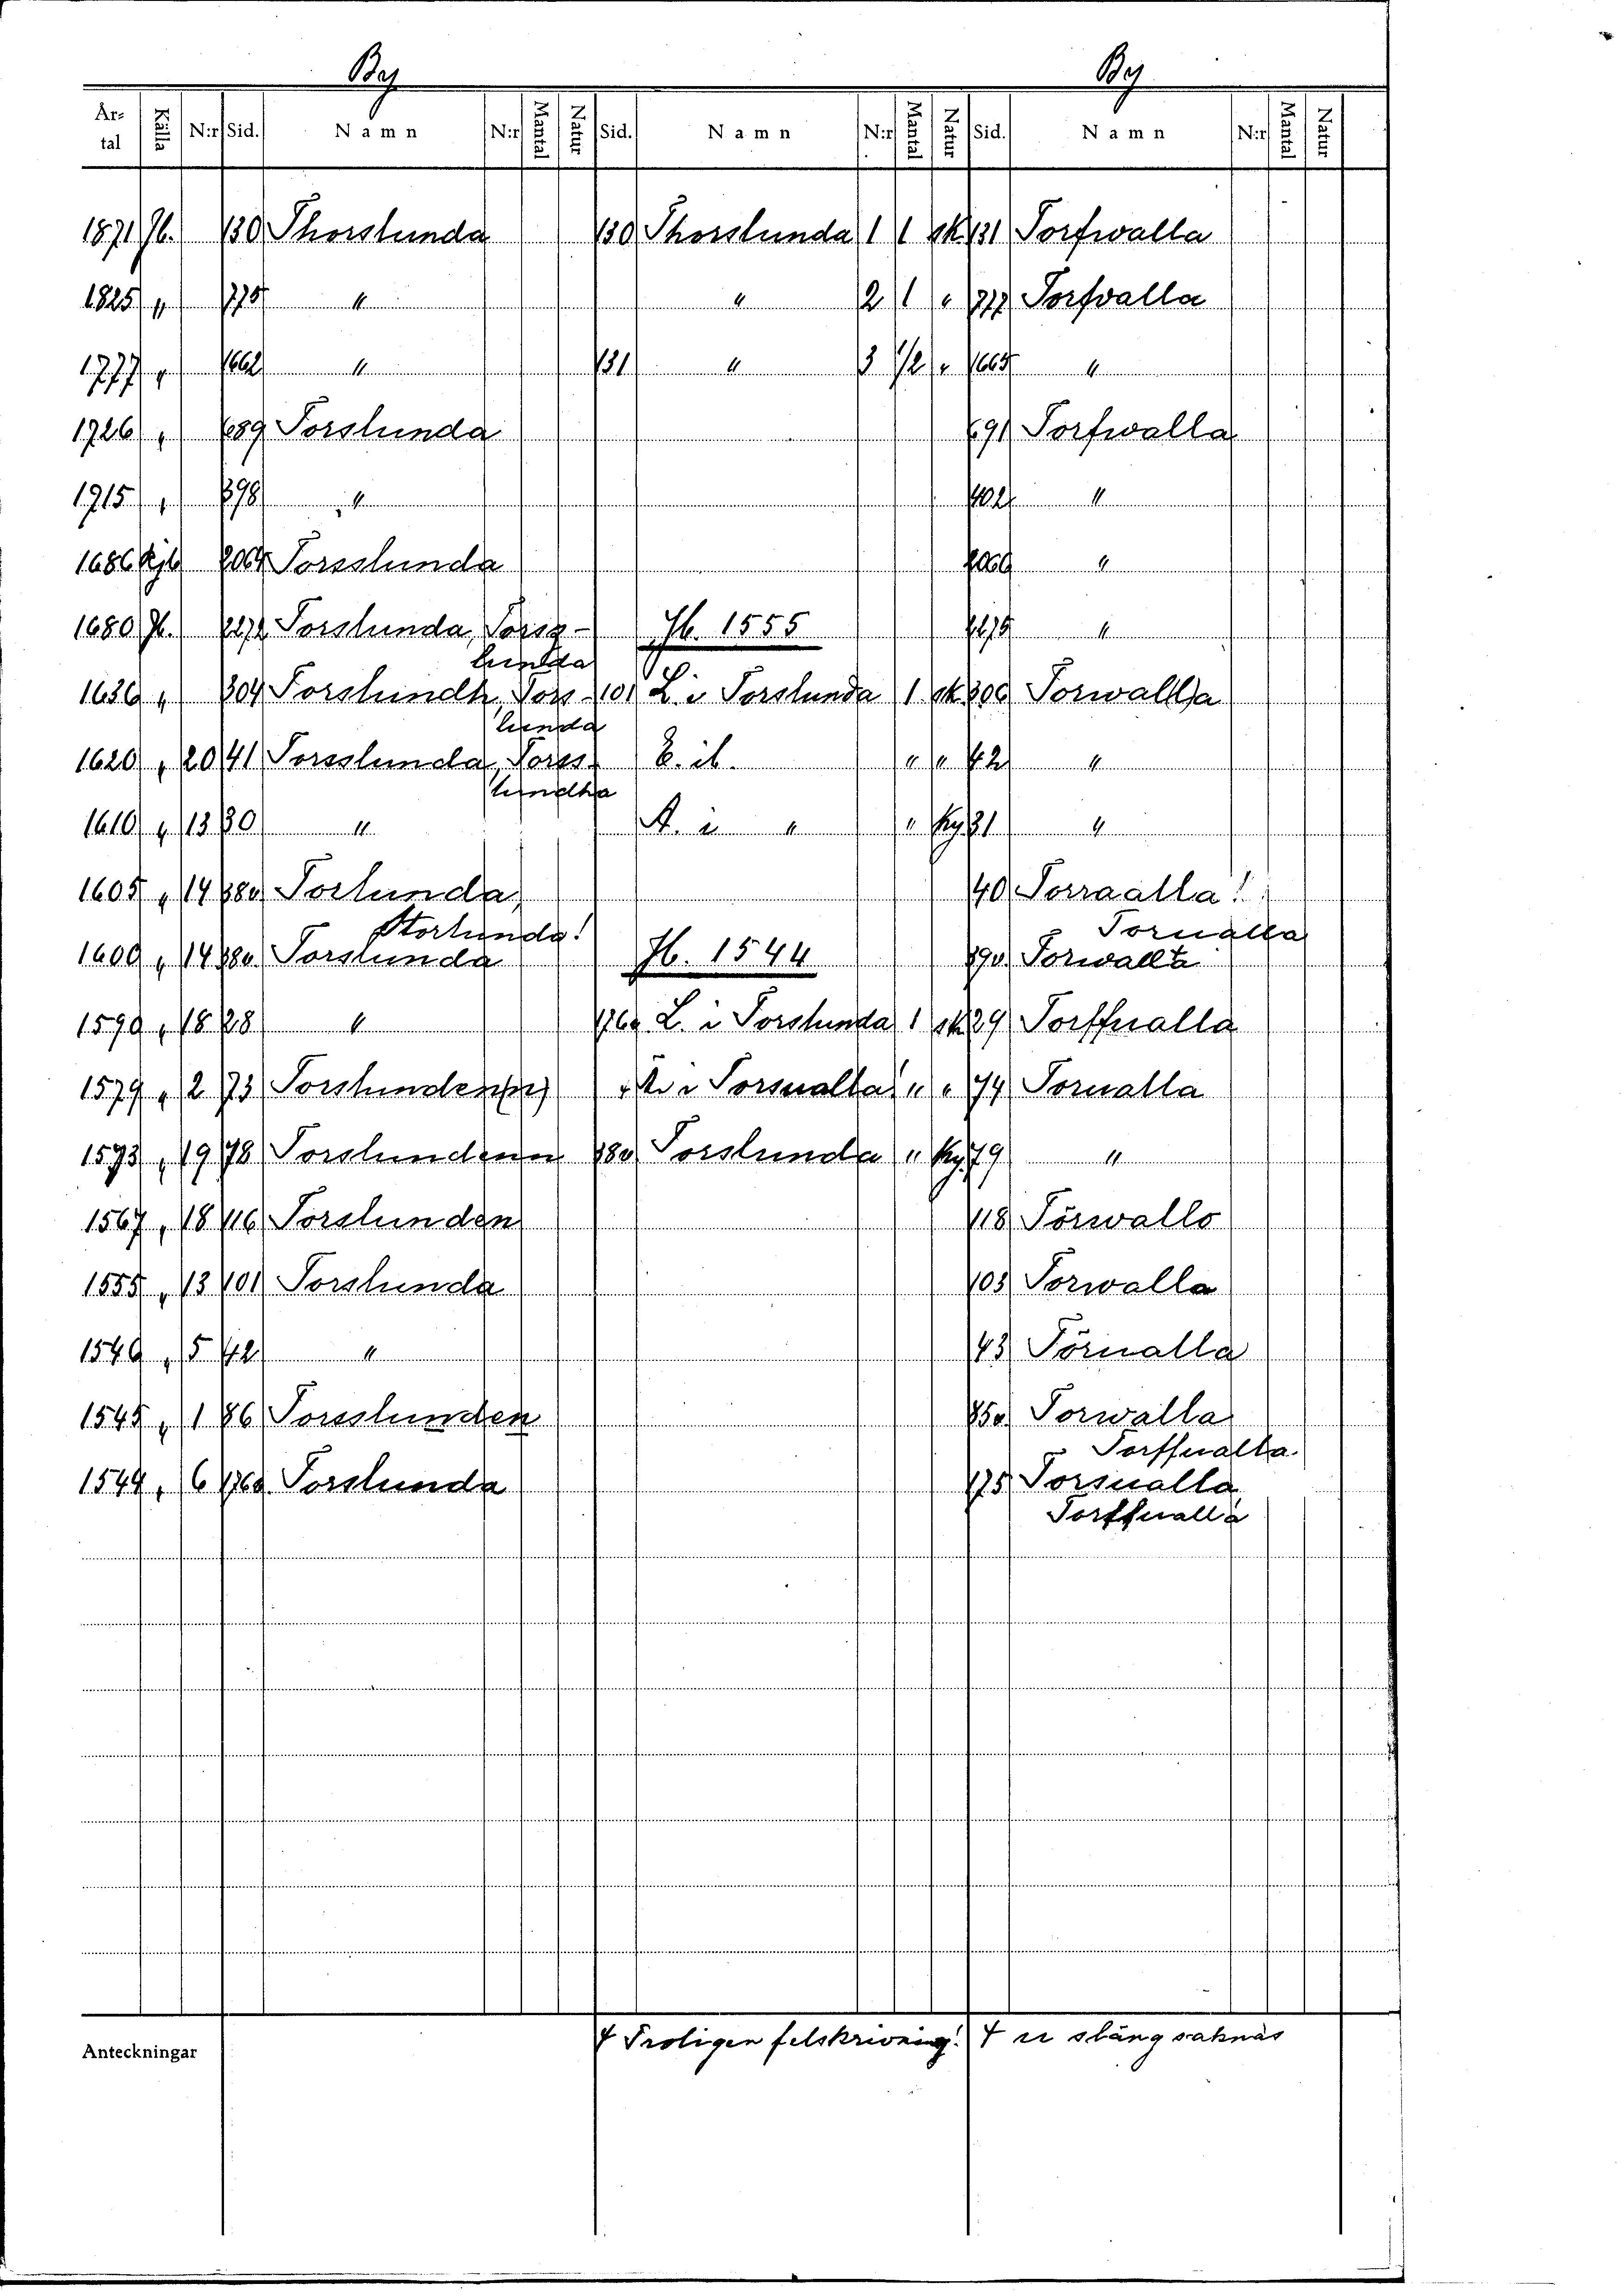 By By
År-tal Källa N:r Sid. Namn N:r Mantal Natur Sid. Namn N:r Mantal Natur Sid. Namn N:r Mantal Natur
1871 Jb. 130 Thorslunda 130 Thorslunda 1 1 sk 131 Torfwalla
1825 " 775 " " 2 1 " 777 Torfvalla
1777 " 1662 " 131 " 3 1/2 " 1665 "
1726 " 689 Torslunda 691 Torfwalla
1715 " 398 " 402 "
1686 Kjb 2064 Torsslunda 2069 "
1680 Jb. 2272 Torslunda, Torss-
lunda Jb. 1555 2275 "
1636 " 304 Torslundh, Torss-
lunda 101 L. i Torslunda 1 sk 306 Torwall(l)a
1620 " 20 41 Torsslunda, Torss-
lundha E. ib. " " 42 "
1610 " 13 30 " A. i " " ky 31 "
1605 " 14 38v Torlunda,
Storlunda! 40 Torraalla!
Torualla
1600 " 14 38v Torslunda Jb. 1544 39v Torwalla
1590 " 18 28 " 176v L. i Torslunda 1 sk 29 Torffualla
1579 " 2 73 Torslunden(n) " A. i Torsualla! " " 74 Torualla
1573 " 19 78 Torslundenn 180 Torslunda " ky 79 "
1567 " 18 116 Torslunden 118 Törwallo
1555 " 13 101 Torslunda 103 Torwalla
1549 " 5 42 " 43 Törualla
1545 " 1 86 Torsslunden 85v Torwalla
Torffualla
1544 " 6 176v Torslunda 175 Torsualla
Torffualla
Anteckningar + Troligen felskrivning! + u släng saknas